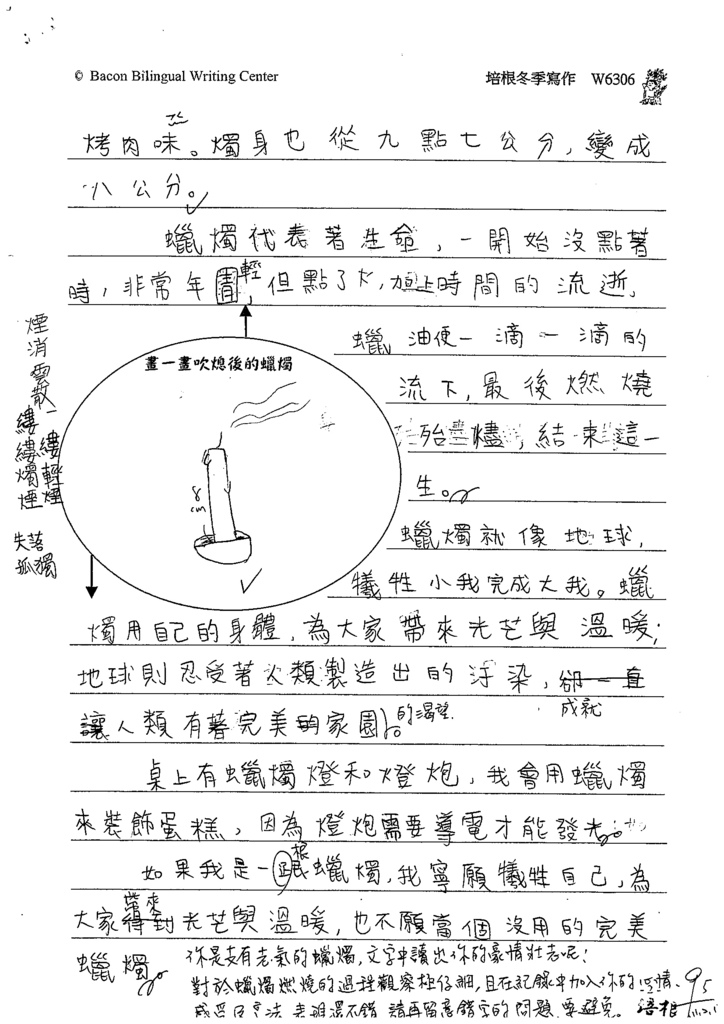 © Bacon Bilingual Writing Center
培根冬季寫作 W6306
烤肉味。燭身也從九點七公分,變成
八公分。
蠟燭代表著生命,一開始沒點著
時,非常年輕,但點了火,加上時間的流逝,
煙消雲散
一縷縷輕煙
縷縷燭煙
失落
孤獨
畫一畫吹熄後的蠟燭
8cm
蠟油便一滴一滴的
流下,最後燃燒
殆盡,結束這一
生。
蠟燭就像地球,
犧牲小我完成大我。蠟
燭用自己的身體,為大家帶來光芒與溫暖;
地球則忍受著人類製造出的汙染,卻一直
成就
讓人類有著完美的家園。
的渴望
桌上有蠟燭燈和燈炮,我會用蠟燭
來裝飾蛋糕,因為燈炮需要導電才能發光。
如果我是一根蠟燭,我寧願犧牲自己,為
帶來
大家得到光芒與溫暖,也不願當個沒用的完美
蠟燭。
你是支有志氣的蠟燭,文字中讀出你的豪情壯志呢!
對於蠟燭燃燒的過程觀察極仔細,且在記錄中加入你的心情、
感受及立法,表現還不錯,請再留意錯字的問題,要避免。培根
95